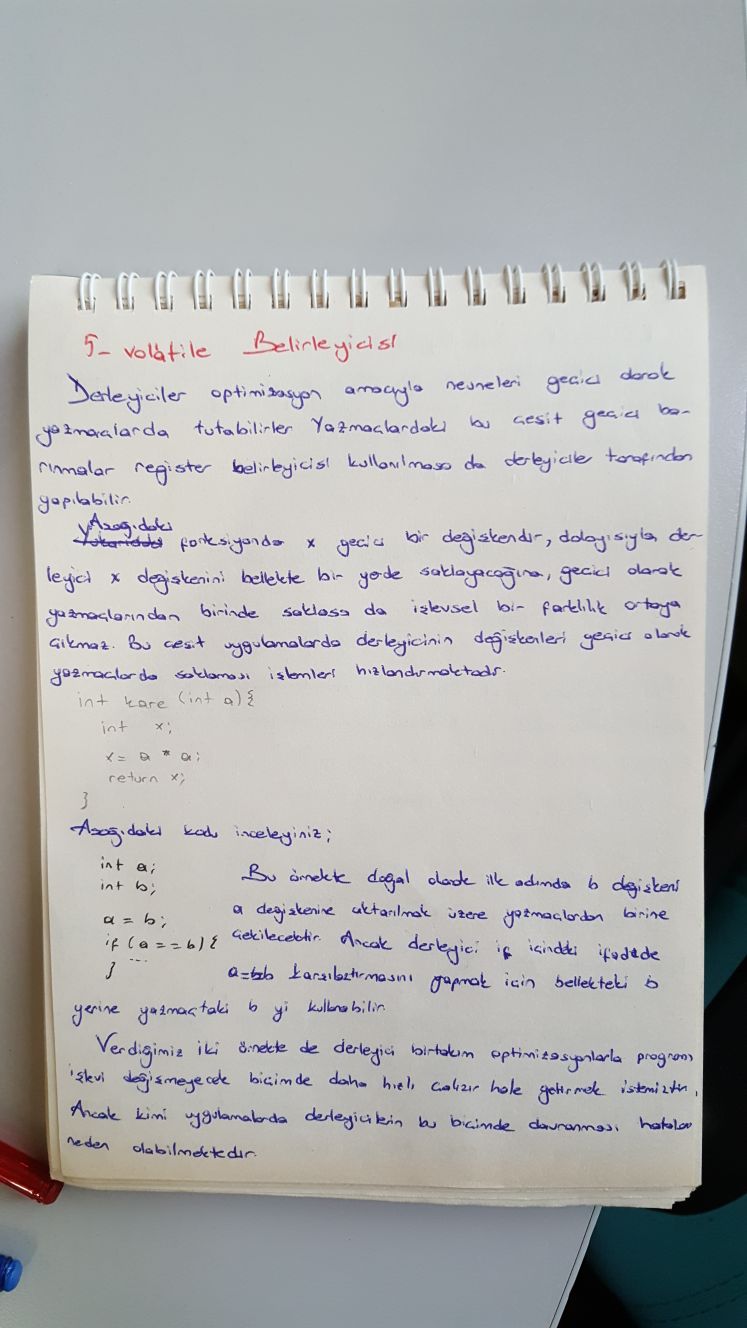 5- volatile Belirleyicisi
Derleyiciler optimizasyon amacıyla nesneleri geçici olarak
yazmaçlarda tutabilirler Yazmaçlardaki bu çeşit geçici ba-
rınmalar register belirleyicisi kullanılmasa da derleyiciler tarafından
yapılabilir.
Aşağıdaki
Yukarıdaki fonksiyonda x geçici bir değişkendir, dolayısıyla der-
leyici x değişkenini bellekte bir yerde saklayacağına, geçici olarak
yazmaçlarından birinde saklasa da işlevsel bir farklılık ortaya
çıkmaz. Bu çeşit uygulamalarda derleyicinin değişkenleri geçici olarak
yazmaçlarda saklaması işlemleri hızlandırmaktadır.
int kare (int a){
int x;
x= a * a;
return x;
}
Aşağıdaki kodu inceleyiniz;
int a;
int b;
a = b;
if (a == b) {
...
}
Bu örnekte doğal olarak ilk adımda b değişkeni
a değişkenine aktarılmak üzere yazmaçlardan birine
çekilecektir. Ancak derleyici if içindeki ifadede
a==b karşılaştırmasını yapmak için bellekteki b
yerine yazmaçtaki b yi kullanabilir.
Verdiğimiz iki örnekte de derleyici birtakım optimizasyonlarla programı
işlevi değişmeyecek biçimde daha hızlı çalışır hale getirmek istemiştir.
Ancak kimi uygulamalarda derleyicilerin bu biçimde davranması hatalara
neden olabilmektedir.